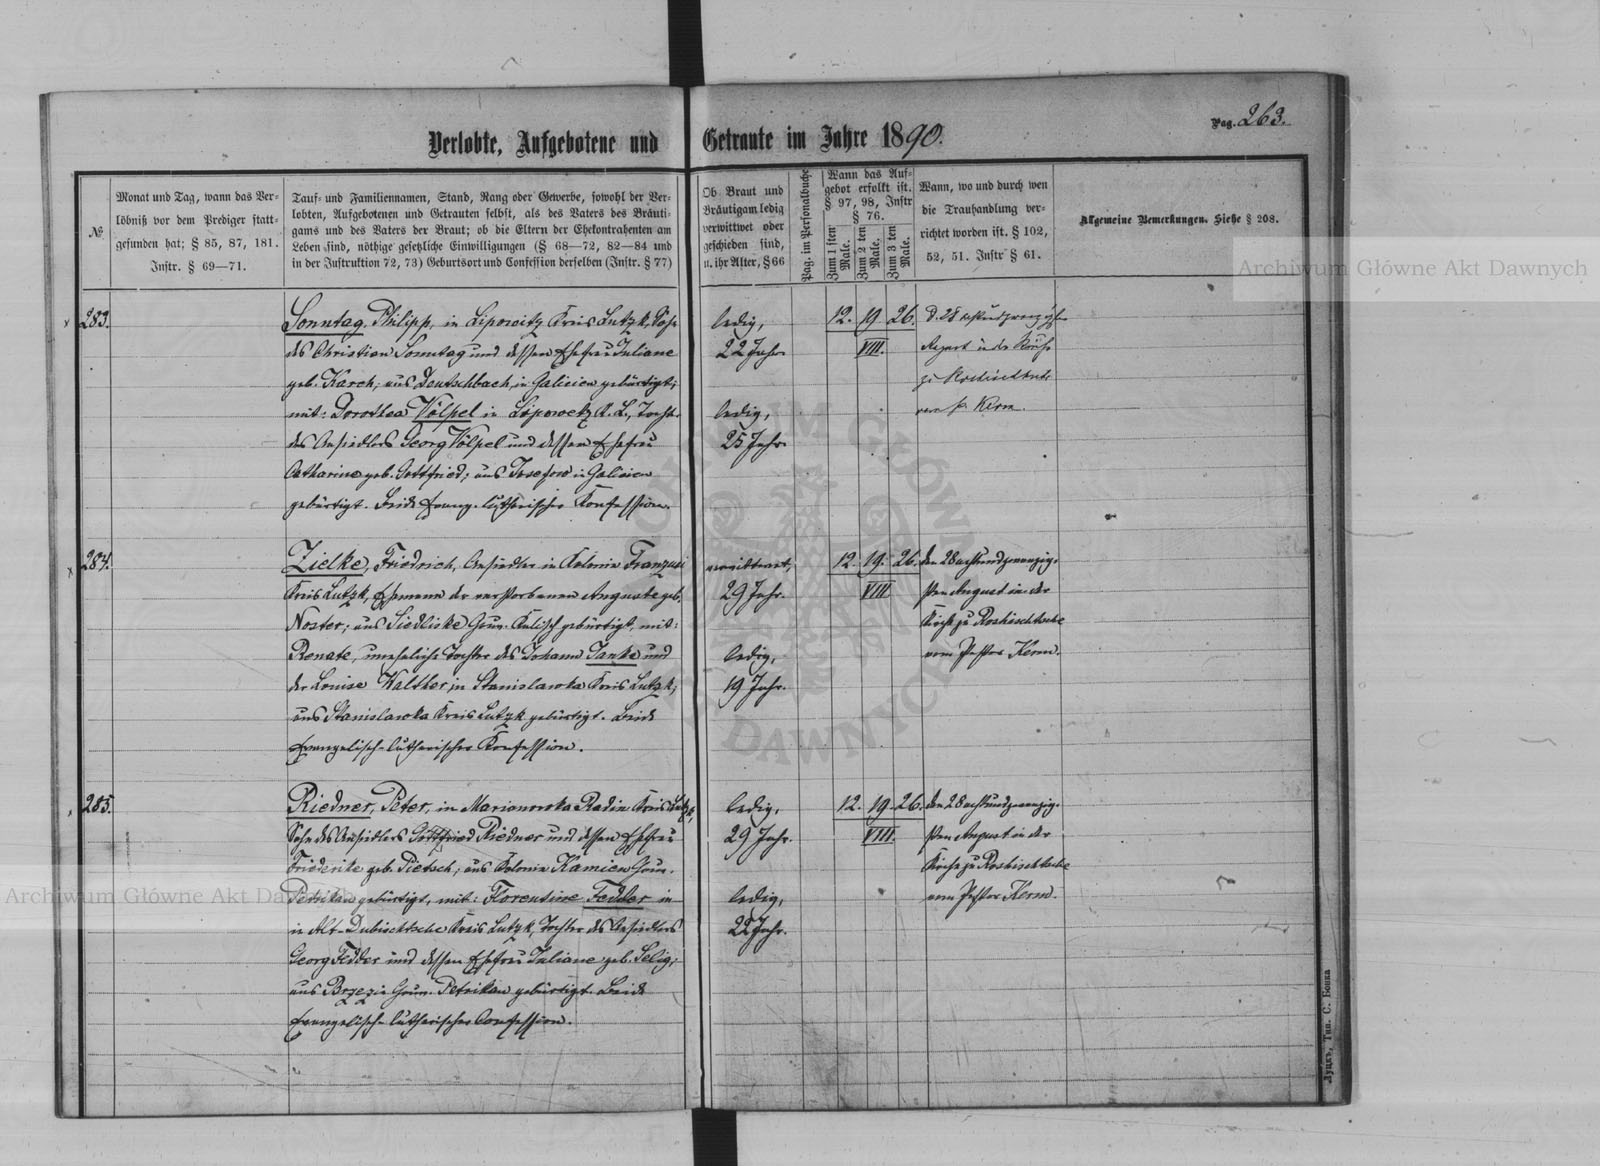 Pag. 263.
Verlobte, Aufgebotene und Getraute im Jahre 1890.
№
Monat und Tag, wann das Ver-
löbniß vor dem Prediger statt-
gefunden hat; § 85, 87, 181.
Instr. § 69—71.
Tauf- und Familiennamen, Stand, Rang oder Gewerbe, sowohl der Ver-
lobten, Aufgebotenen und Getrauten selbst, als des Vaters des Bräuti-
gams und des Vaters der Braut; ob die Eltern der Ehekontrahenten am
Leben sind, nöthige gesetzliche Einwilligungen (§ 68—72, 82—84 und
in der Instruktion 72, 73) Geburtsort und Confession derselben (Instr. § 77)
Ob Braut und
Bräutigam ledig
verwittwet oder
geschieden sind,
u. ihr Alter, § 66
Pag. im Personalbuche
Wann das Auf-
gebot erfolkt ist.
§ 97, 98, Instr
§ 76.
Zum 1 sten Male.
Zum 2 ten Male.
Zum 3 ten Male.
Wann, wo und durch wen
die Trauhandlung ver-
richtet worden ist. § 102,
52, 51. Instr § 61.
Allgemeine Bemerkungen. Siehe § 208.
283.
Sonntag, Philipp, in Lipowitz Kreis Lutzk, Sohn
des Christian Sonntag und dessen Ehefrau Juliane
geb. Karch; aus Deutschbach in Galicien gebürtigt;
mit: Dorothea Völpel in Lipowetz K. L., Tocht.
des Ansiedlers Georg Völpel und dessen Ehefrau
Catharine geb. Gottfried; aus Josefow in Galicien
gebürtigt. Beide Evang.-lutherischer Konfession.
ledig,
22 Jahr
ledig,
25 Jahr
12. 19 26.
VIII.
d. 28 achtundzwanzigsten
August in der Kirche
zu
von P. Kerm.
284.
Zielke, Friedrich, Ansiedler in Kolonie
Kreis Lutzk, Ehemann der verstorbenen Auguste geb.
Noster; aus Siedliske Gouv. Kalisch gebürtigt, mit:
Renate, uneheliche Tochter des Johann Janke und
der Louise Walther, in Stanislawka Kreis Lutzk;
aus Stanislawka Kreis Lutzk gebürtigt. Beide
Evangelisch-lutherischer Konfession.
verwittwet,
29 Jahr.
ledig,
19 Jahr.
12. 19. 26.
VIII
den 28 achtundzwanzig-
sten August in der
Kirche zu Roshischtsche
vom Pastor Kerm.
285.
Riedner, Peter, in Marianowka Radin Kreis Lutzk,
Sohn des Ansiedlers Gottfried Riedner und dessen Ehefrau
Friederike geb. Pietsch; aus Kolonie Kamien Gouv.
Petrikau gebürtigt, mit: Florentine Fedder in
in Alt-Dubischtsche Kreis Lutzk, Tochter des Ansiedlers
Georg Fedder und dessen Ehefrau Juliane geb. Selig;
aus Brzezie Gouv. Petrikau gebürtigt. Beide
Evangelisch-lutherischer Confession.
ledig,
29 Jahr
ledig,
22 Jahr.
12. 19. 26.
VIII.
den 28 achtundzwanzig-
sten August in der
Kirche zu Roshischtsche
vom Pastor Kerm.
Луцкъ, Тип. С. Бонка
Archiwum Główne Akt Dawnych
Archiwum Główne Akt Dawnych
ARCHIWUM GŁÓWNE AKT DAWNYCH